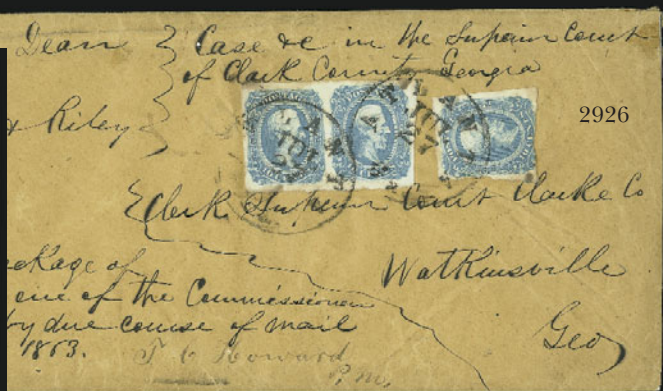 Dean } Case &c in the Superior Court
of Clark County Georgia
& Riley }
2926
ATLAN
JUL
27
Clerk Superior Court Clarke Co
Watkinsville
Geo
ackage of
one of the Commissioners
by due course of mail
1863.
T C Howard
P.M.